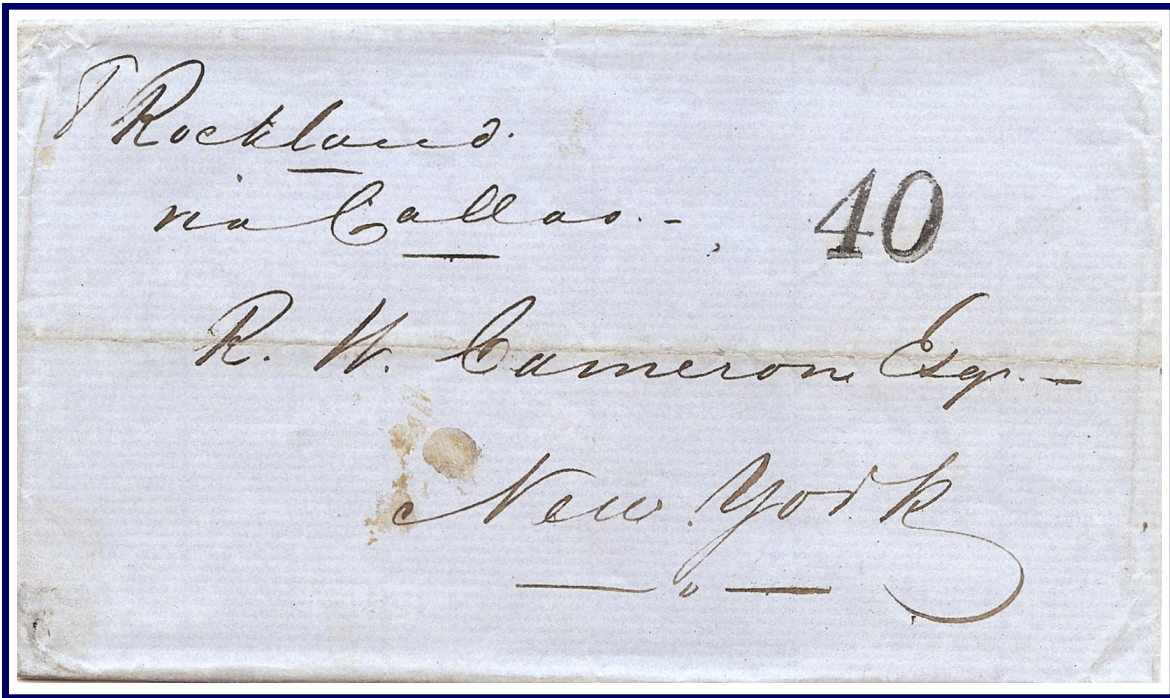 P Rockland.
via Callao. -
40
R. W. Cameron Esqr. -
New York